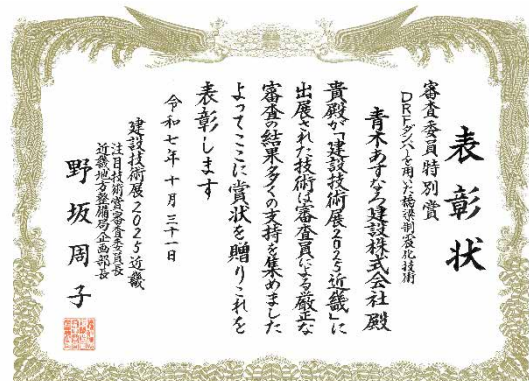 表彰状
審査委員特別賞
DRFダンパーを用いた橋梁制震化技術
青木あすなろ建設株式会社 殿
貴殿が「建設技術展2025近畿」に
出展された技術は審査員による厳正な
審査の結果多くの支持を集めました
よってここに賞状を贈りこれを
表彰します
令和七年十月三十一日
建設技術展2025近畿
注目技術賞審査委員長
近畿地方整備局企画部長
野坂周子